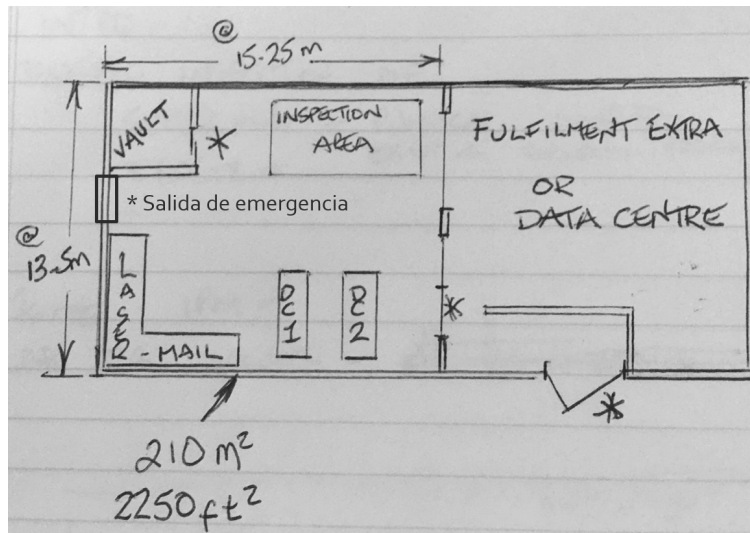 @
15.25 m
VAULT
*
INSPECTION
AREA
FULFILMENT EXTRA
OR
DATA CENTRE
* Salida de emergencia
@
13.5m
LASER - MAIL
DC1
DC2
*
*
210 m²
2250 ft²